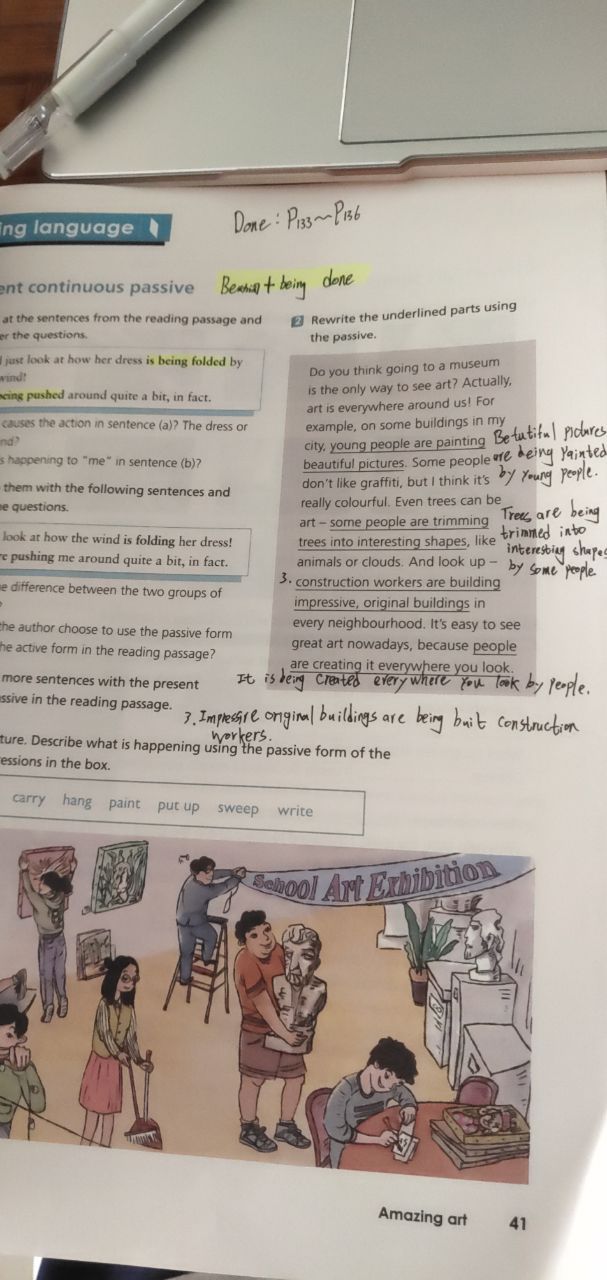 ng language
Done: P133~P136
ent continuous passive
+ being done
at the sentences from the reading passage and
er the questions.
l just look at how her dress is being folded by
wind!
eing pushed around quite a bit, in fact.
causes the action in sentence (a)? The dress or
nd?
s happening to "me" in sentence (b)?
them with the following sentences and
e questions.
look at how the wind is folding her dress!
e pushing me around quite a bit, in fact.
e difference between the two groups of
?
the author choose to use the passive form
he active form in the reading passage?
more sentences with the present
ssive in the reading passage.
2 Rewrite the underlined parts using
the passive.
Do you think going to a museum
is the only way to see art? Actually,
art is everywhere around us! For
example, on some buildings in my
city, young people are painting
beautiful pictures. Some people
don't like graffiti, but I think it's
really colourful. Even trees can be
art – some people are trimming
trees into interesting shapes, like
animals or clouds. And look up –
3. construction workers are building
impressive, original buildings in
every neighbourhood. It's easy to see
great art nowadays, because people
are creating it everywhere you look.
Betutiful pictures
are being painted
by young people.
Trees are being
trimmed into
interesting shapes
by some people
It is being created everywhere you look by people.
3. Impressire original buildings are being buit construction
workers.
ture. Describe what is happening using the passive form of the
essions in the box.
carry hang paint put up sweep write
School Art Exhibition
Amazing art 41